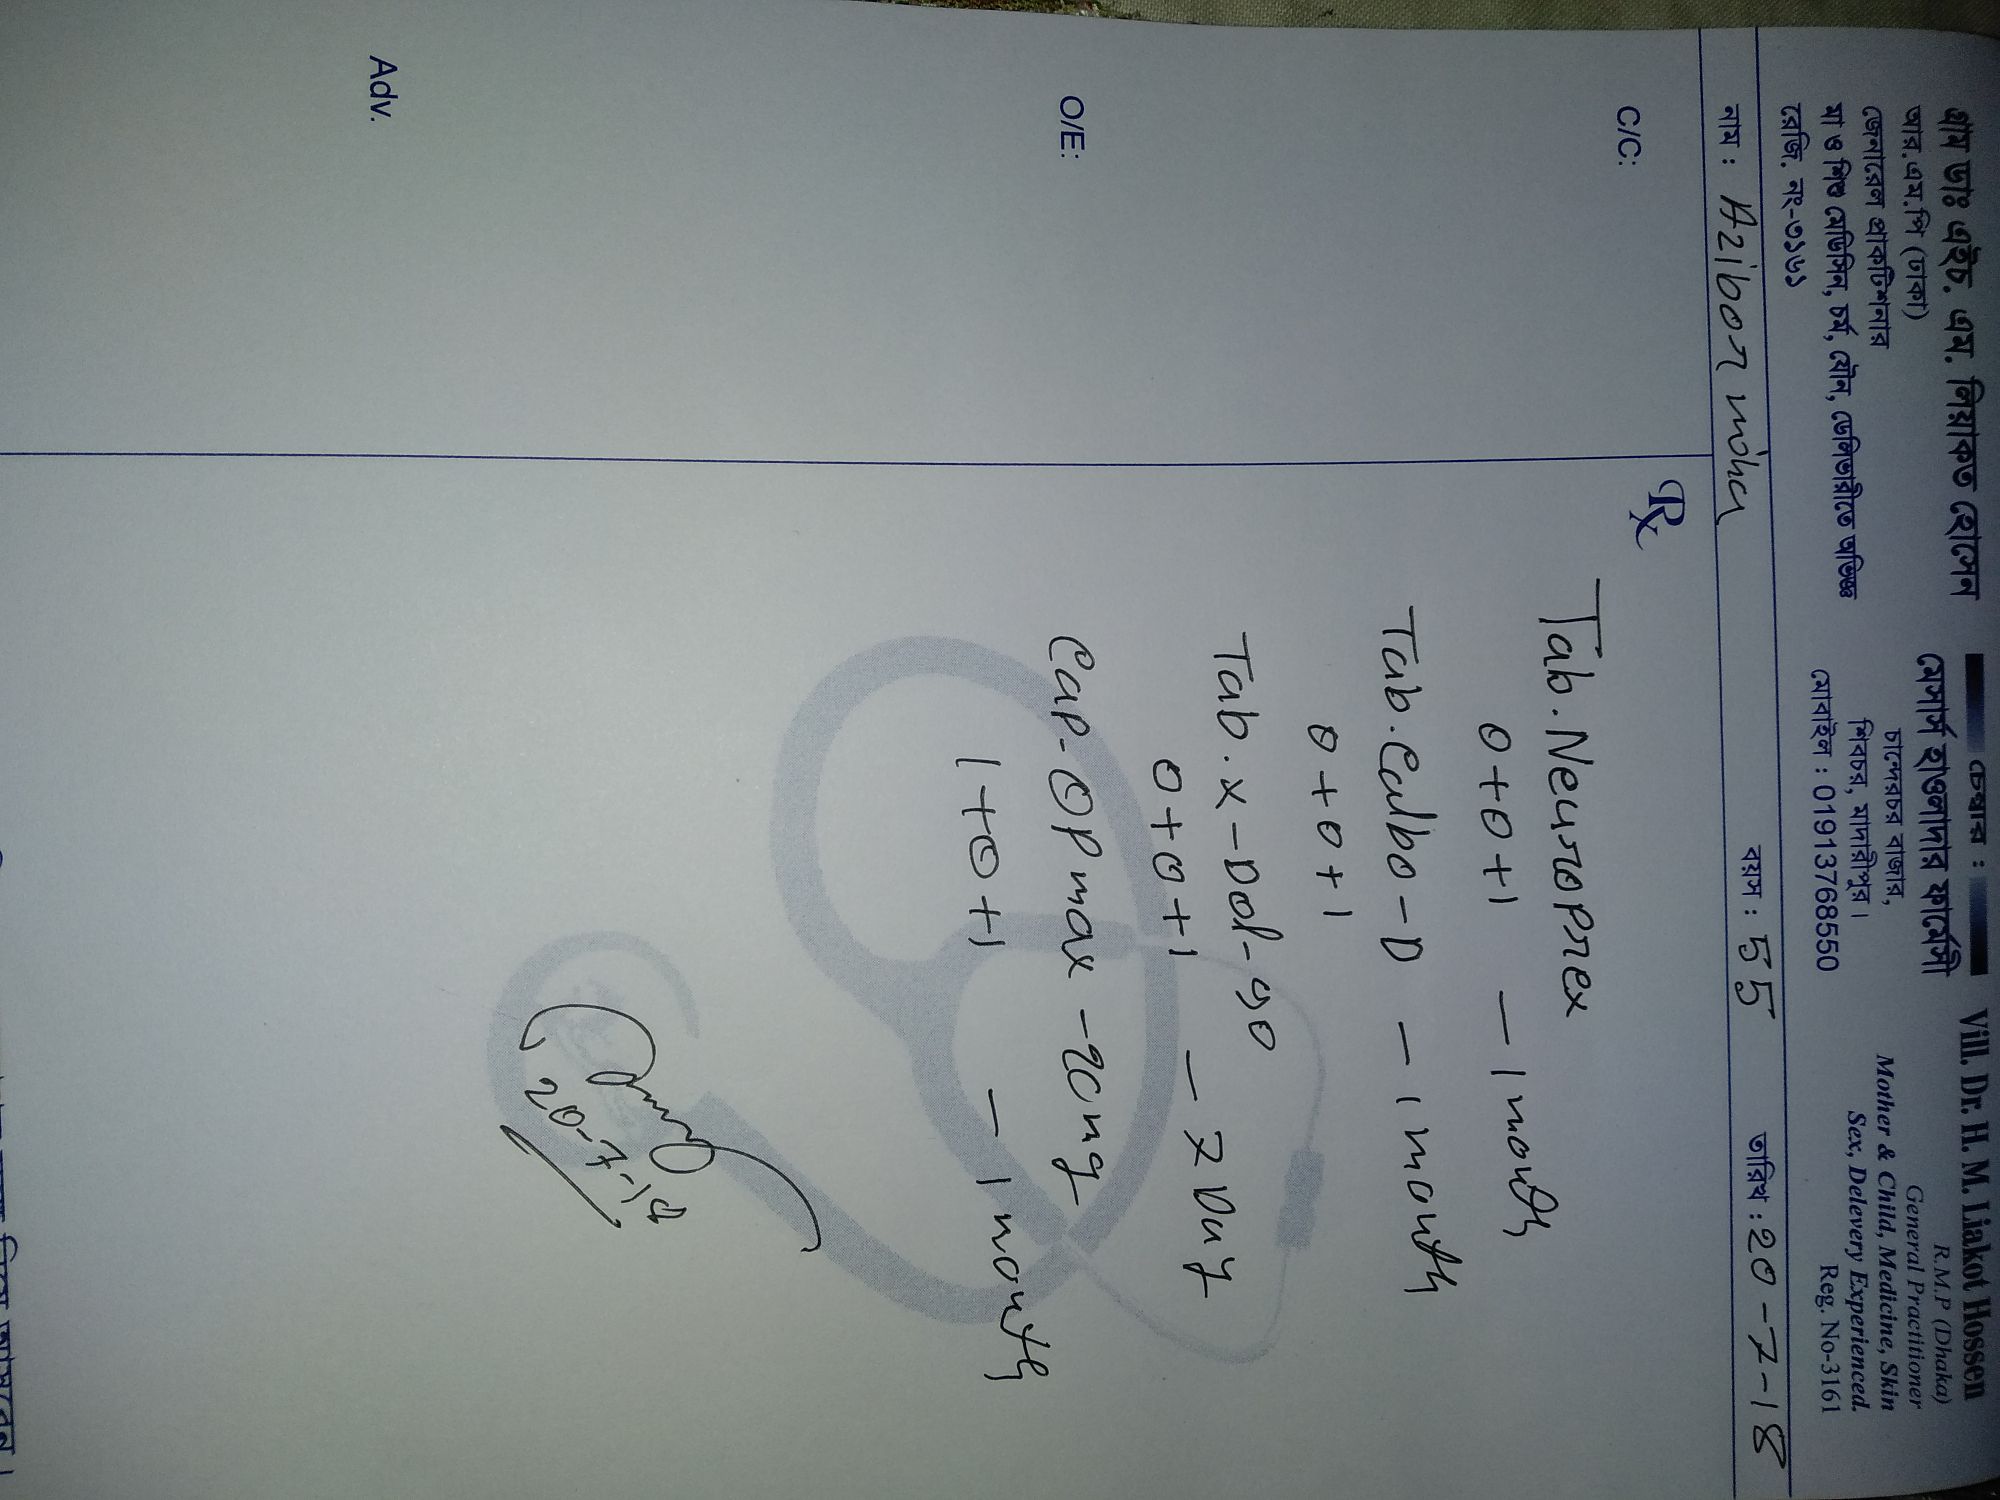 গ্রাম ডাঃ এইচ. এম. লিয়াকত হোসেন
আর.এম.পি (ঢাকা)
জেনারেল প্রাকটিশনার
মা ও শিশু মেডিসিন, চর্ম, যৌন, ডেলিভারীতে অভিজ্ঞ
রেজি. নং-৩১৬১
চেম্বার :
মেসার্স হাওলাদার ফার্মেসী
চান্দেরচর বাজার,
শিবচর, মাদারীপুর।
মোবাইল : 01913768550
Vill. Dr. H. M. Liakot Hossen
R.M.P (Dhaka)
General Practitioner
Mother & Child, Medicine, Skin
Sex, Delevery Experienced.
Reg. No-3161
নাম : Azibor miha বয়স : 55 তারিখ : 20-7-18
C/C:
O/E:
Adv.
Rx
Tab. Neuroprex
0+0+1 – 1 month
Tab. Calbo-D – 1 month
0+0+1
Tab. x-Dol-50
0+0+1 – 7 Day
Cap-OPmax -20mg
1+0+1 – 1 month
20-7-18